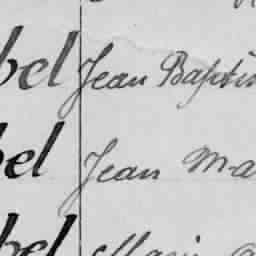 bel Jean Baptis
bel Jean Ma
bel Marie